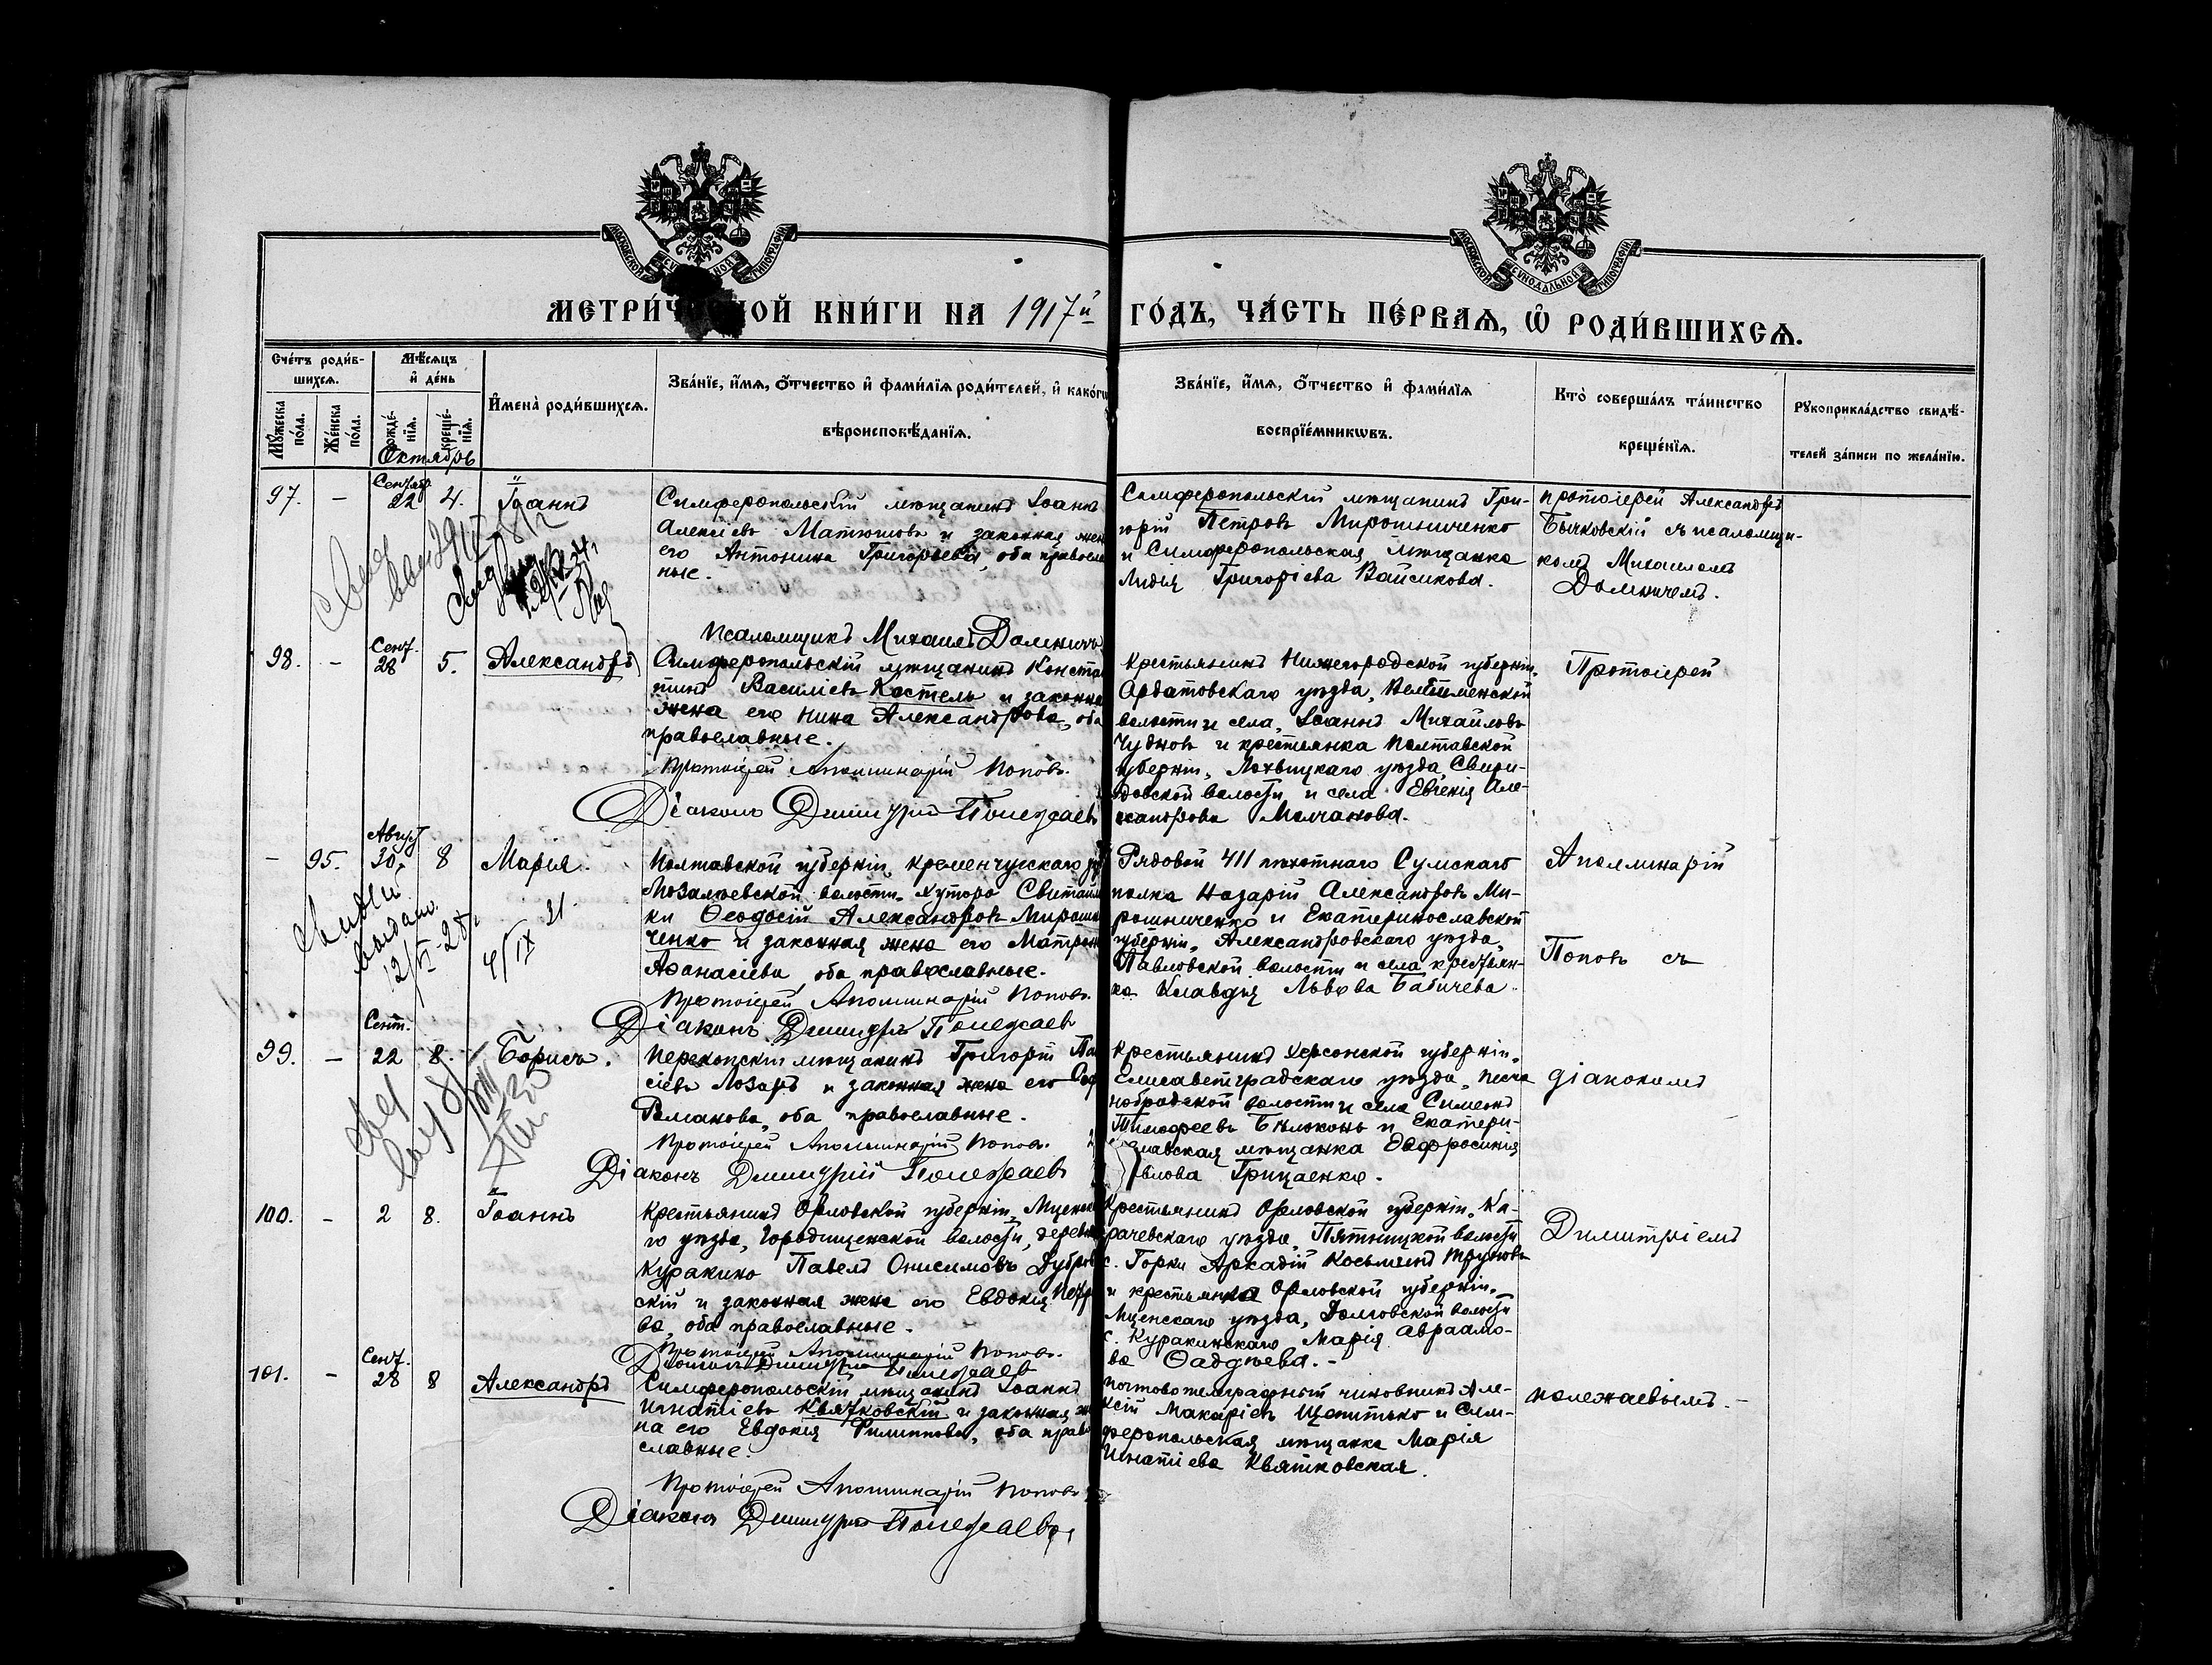 МОСКОВСКОЙ СѴНОДАЛЬНОЙ ТИПОГРАФІИ
МЕТРИ́Ч ОЙ КНИ́ГИ НА 1917й ГО́ДЪ, ЧА́СТЬ ПЕ́РВАѦ, Ѽ РОДИ́ВШИХСѦ.
Сче́тъ роди́в-
шихсѧ.
Мꙋ́жеска по́ла.
Же́нска по́ла.
Мѣ́сѧцъ
и҆ де́нь
рожде́-
нїѧ.
креще́-
нїѧ.
Октябрь
И҆мена̀ роди́вшихсѧ.
Зва́нїе, и҆́мѧ, ѻ҆́тчество и҆ фами́лїѧ роди́телей, и҆ како́гѡ
вѣроисповѣ́данїѧ.
Зва́нїе, и҆́мѧ, ѻ҆́тчество и҆ фами́лїѧ
воспрїе́мникѡвъ.
Кто̀ соверша́лъ та́инство
креще́нїѧ.
Рꙋкоприкла́дство свидѣ́-
телей за́писи по жела́нїю.
97. - Сентябр. 22 4. Іоаннъ
Симферопольскій мѣщанинъ Іоаннъ
Алексіевъ Матюшовъ и законная жен
его Антонина Григорьева, оба правосла
ные.
Симферопольскій мѣщанинъ Гри-
горій Петровъ Мирошниченко
и Симферопольская мѣщанка
Лидія Григоріева Вайсикова.
протоіерей Александръ
Бычковскій съ псаломщи-
комъ Михаиломъ
Доменичемъ.
Псаломщикъ Михаилъ Доменичъ
98. - Сент. 28 5. Александръ
Симферопольскій мѣщанинъ Конста
тинъ Василіевъ Костель и законна
жена его Нина Александрова, оба
православные.
Протоіерей Аполлинарій Поповъ.
Діаконъ Димитрій Полежаевъ
Крестьянинъ Нижегородской губерніи,
Ардатовскаго уѣзда,
волости и села, Іоаннъ Михайловъ
Чудновъ и крестьянка Полтавской
губерніи, Лохвицкаго уѣзда, Свири-
довской волости и села Евгенія Але-
ксандрова Молчанова.
Протоіерей
- 95. Август 30. 8 Марія.
Полтавской губерніи, Кременчугскаго у
волости, хутора
ки Ѳеодосій Александровъ Мирошни
ченко и законная жена его Матрон
Аѳанасіева, оба православные.
Протоіерей Аполлинарій Поповъ.
Діаконъ Димитрій Полежаевъ
выдано
4/IX 31.
Рядовой 411 пѣхотнаго Сумскаго
полка Назарій Александровъ Ми-
рошниченко и Екатеринославской
губерніи, Александровскаго уѣзда,
Павловской волости и села крестьян-
ка Клавдія Львова Бабичева.
Аполлинарій
Поповъ съ
99. - Сент. 22 8. Борисъ.
Перекопскій мѣщанинъ Григорій Па
сіевъ Лозарь и законная жена его
Романова, оба православные.
Протоіерей Аполлинарій Поповъ.
Діаконъ Димитрій Полежаевъ
Крестьянинъ Херсонской губерніи,
Елисаветградскаго уѣзда, Песча
нобродской волости и села Симеонъ
Тимофеевъ Бѣлоконь и Екатери-
славская мѣщанка Евфросинія
влова Грицаенко.
діакономъ
100. - 2 8. Іоаннъ
Крестьянинъ Орловской губерніи, Мценска
го уѣзда, Городищенской волости, деревни
Куракино Павелъ Онисимовъ Дубров
скій и законная жена его Евдокія Петр
ва, оба православные.
Протоіерей Аполлинарій Поповъ.
Діаконъ Димитрій Полежаевъ
Крестьянинъ Орловской губерніи, Ка-
рачевскаго уѣзда, Пятницкой волости
с. Горки Аркадій Косьминъ Труновъ
и крестьянка Орловской губерніи,
Мценскаго уѣзда, волости
с. Куракинскаго Марія Авраамо-
ва Ѳаддѣева.-
Димитріемъ
101. - Сент. 28 8 Александръ
Симферопольскій мѣщанинъ Іоаннъ
Игнатіевъ Квятковскій и законная же
на его Евдокія Филиппова, оба право
славные.
Протоіерей Аполлинарій Поповъ
Діаконъ Димитрій Полежаевъ
Почтово телеграфный чиновникъ Але-
ксій Макаріевъ Щепитько и Сим-
феропольская мѣщанка Марія
Игнатіева Квятковская.
Полежаевымъ.-